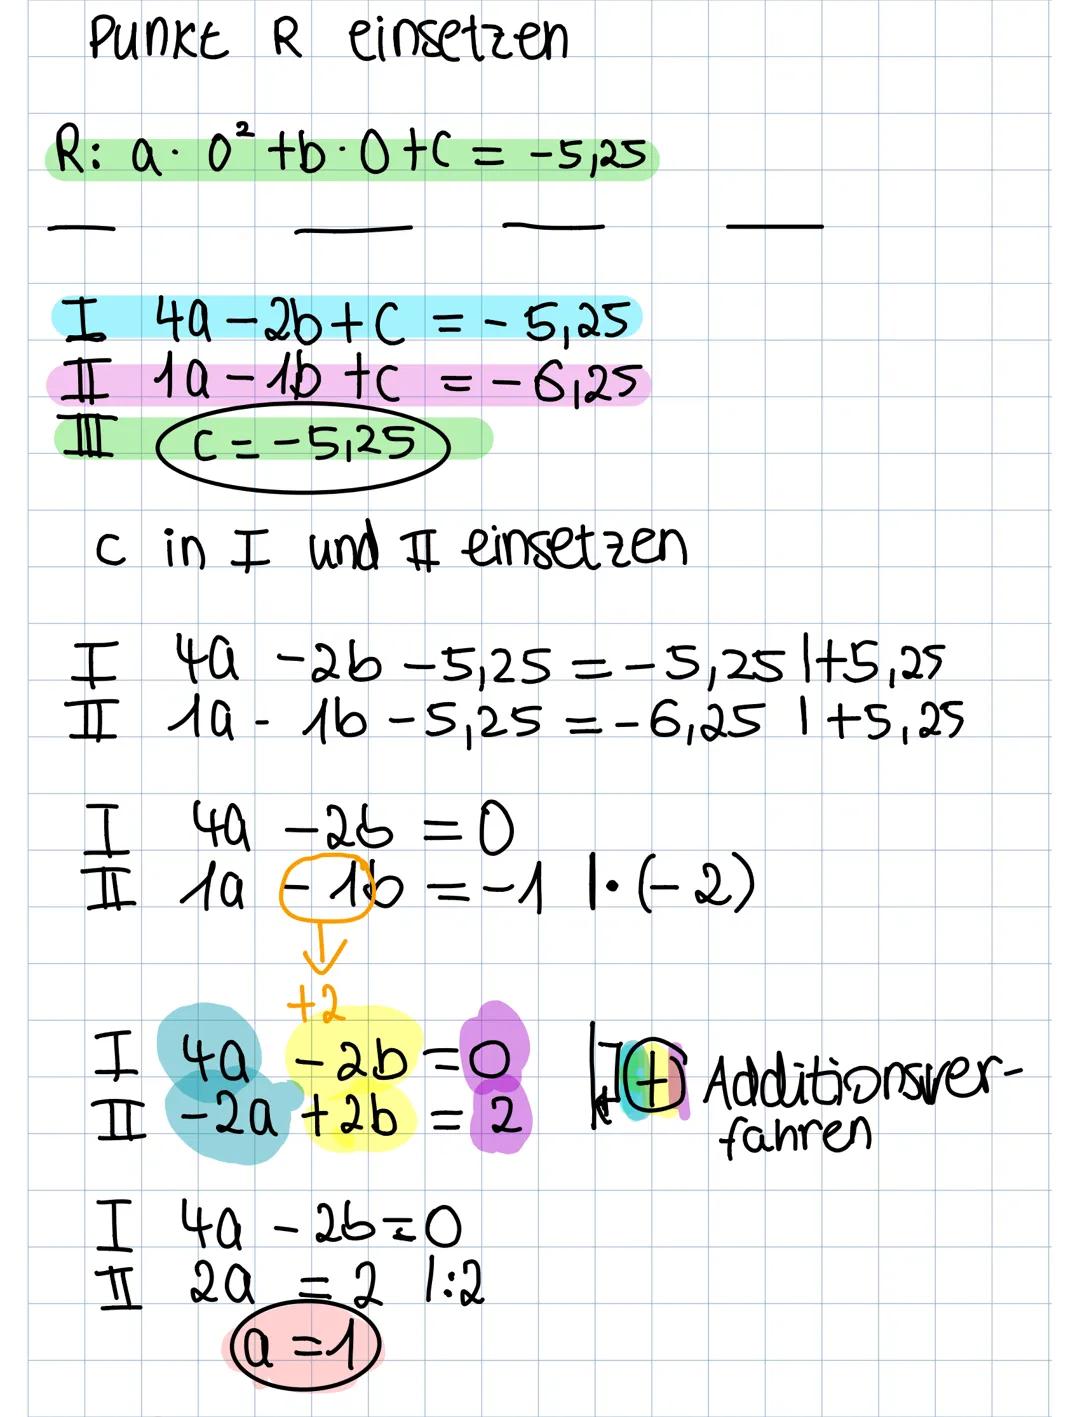 Punkt R einsetzen
R: a · 0² + b · 0 + c = -5,25
I 4a - 2b + c = - 5,25
II 1a - 1b + c = - 6,25
III c = -5,25
c in I und II einsetzen
I 4a - 2b - 5,25 = - 5,25 |+5,25
II 1a - 1b - 5,25 = - 6,25 | +5,25
I 4a - 2b = 0
II 1a - 1b = -1 |· (-2)
+2
I 4a - 2b = 0
II -2a + 2b = 2
+ Additionsver-
fahren
I 4a - 2b = 0
II 2a = 2 |:2
a = 1